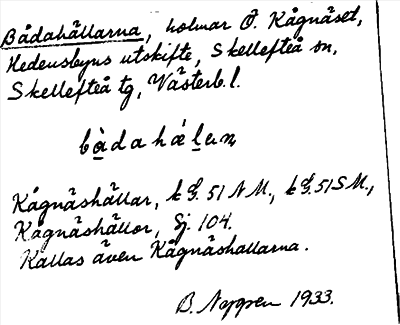 Bådahällarna, holmar Ö. Kågnäset,
Hedensbyns utskifte, Skellefteå sn,
Skellefteå tg, Västerb. l.
Kågnäshällar, k G. 51 N M., k G. 51 S M.,
Kågnäshällor, Sj. 104.
Kallas även Kågnäshallarna.
B. Nygren 1933.